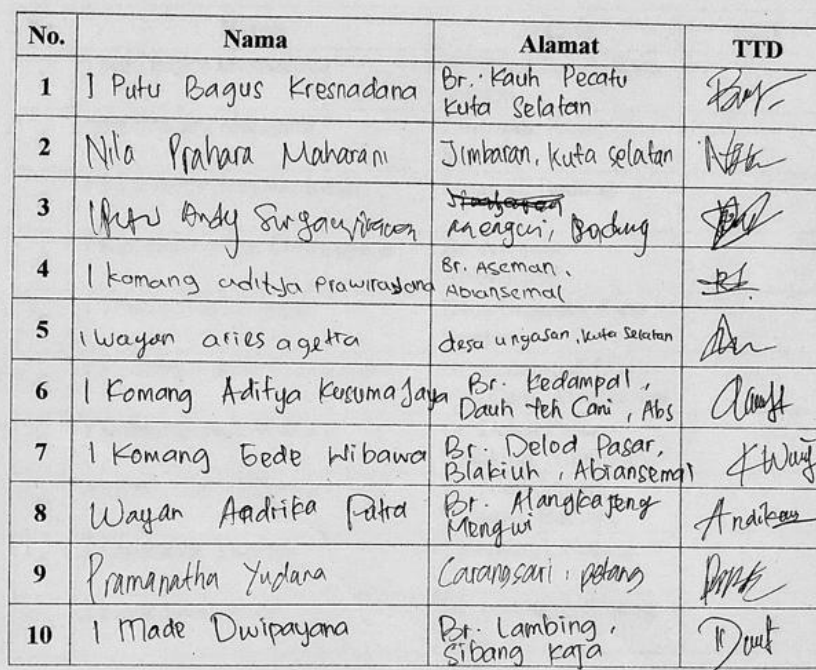 No. Nama Alamat TTD
1 I Putu Bagus Kresnadana Br. Kauh Pecatu
Kuta Selatan
2 Nila Prahara Maharani Jimbaran, Kuta selatan
3 I Putu Andy Mengwi, Badung
4 I Komang aditya Prawirayana Br. Aseman,
Abiansemal
5 I wayan aries agetra desa ungasan, kuta selatan
6 I Komang Aditya Kusuma Jaya Br. Kedampal,
Dauh Yeh Cani, Abs
7 I Komang Gede Wibawa Br. Delod Pasar,
Blakiuh, Abiansemal
8 Wayan Andrika Putra Br. Alangkajeng
Mengwi
9 Pramanatha Yudana Carangsari, petang
10 I Made Dwipayana Br. Lambing,
Sibang Kaja